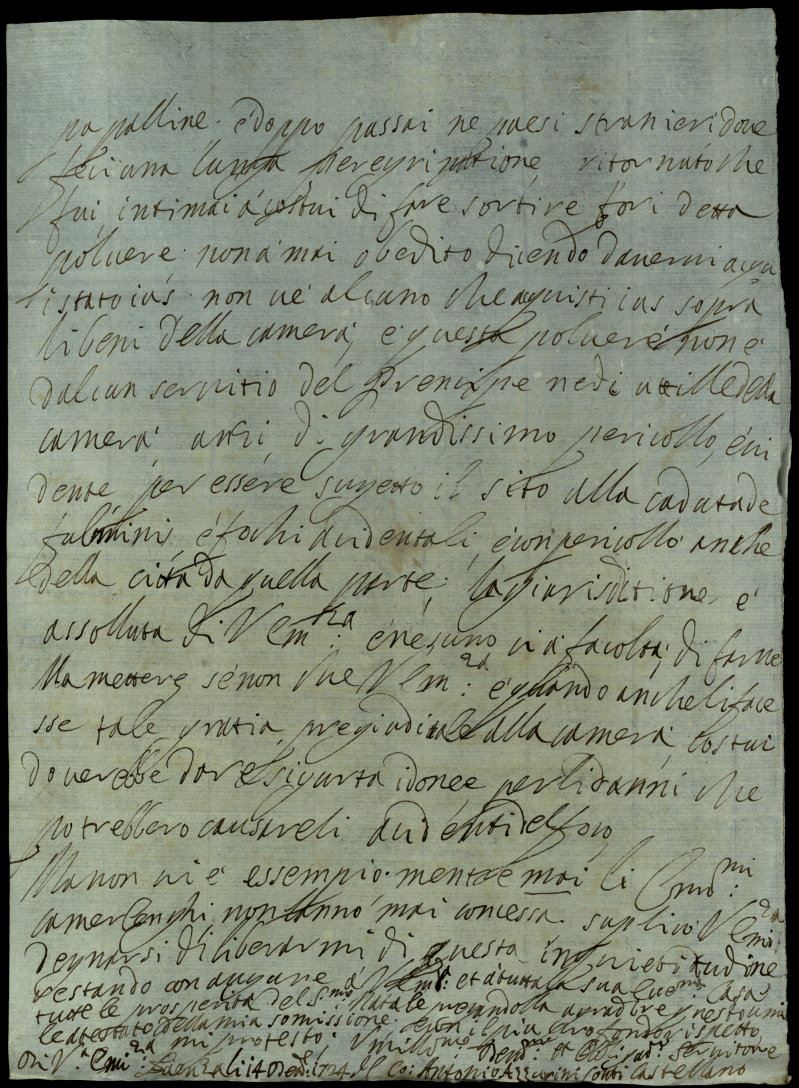 pa palline. e doppo passai ne paesi stranieri doue
feci una lunga peregrinatione, ritornato che
fui, intimai a costui di fare sortire fori detta
poluere. non à mai obedito dicendo d'auerui aqu
istato ius. non ue alcuno che aquisti ius sopra
li beni della camera, e questa poluere non è
dalcun seruitio del Prencipe nedi utille della
camera, anzi, di grandissimo pericollo, éui
dente, per essére sugetto il sito alla cadutade
fulmini, é fochi acidentali, é con pericollo anche
della città da quella parte. la giurisditione, é
assolluta di V Em.za é nesuno ui à facolta, di farue
lla mettere, sé non che V Em.za é quando anche li face
sse tale gratia pregiuditiale alla camera, costui
douerebbe dare sigurta idonee per li danni che
potrebbero causare li acidenti del foco
Ma non ui é essempio. mentre mai li Emi.mi
camerlenghi non l'anno mai concessa. suplico V Emi.za
degnarsi di liberarmi di questa inquietitudine
restando con augurare a V Em.za: et a tutta la sua Casa
tutte le prosperita del S.mo Natale pregandola agradire questo umi
le atestato della mia somissione. e con il piu profondo rispetto
mi protesto. Vmillo.mo Deuo.mo et Obli. Seruitore
Di V.a Emi.za Faenza li 14 Dec. 1724. Il Co: Antonio Azzurini Conti Castellano